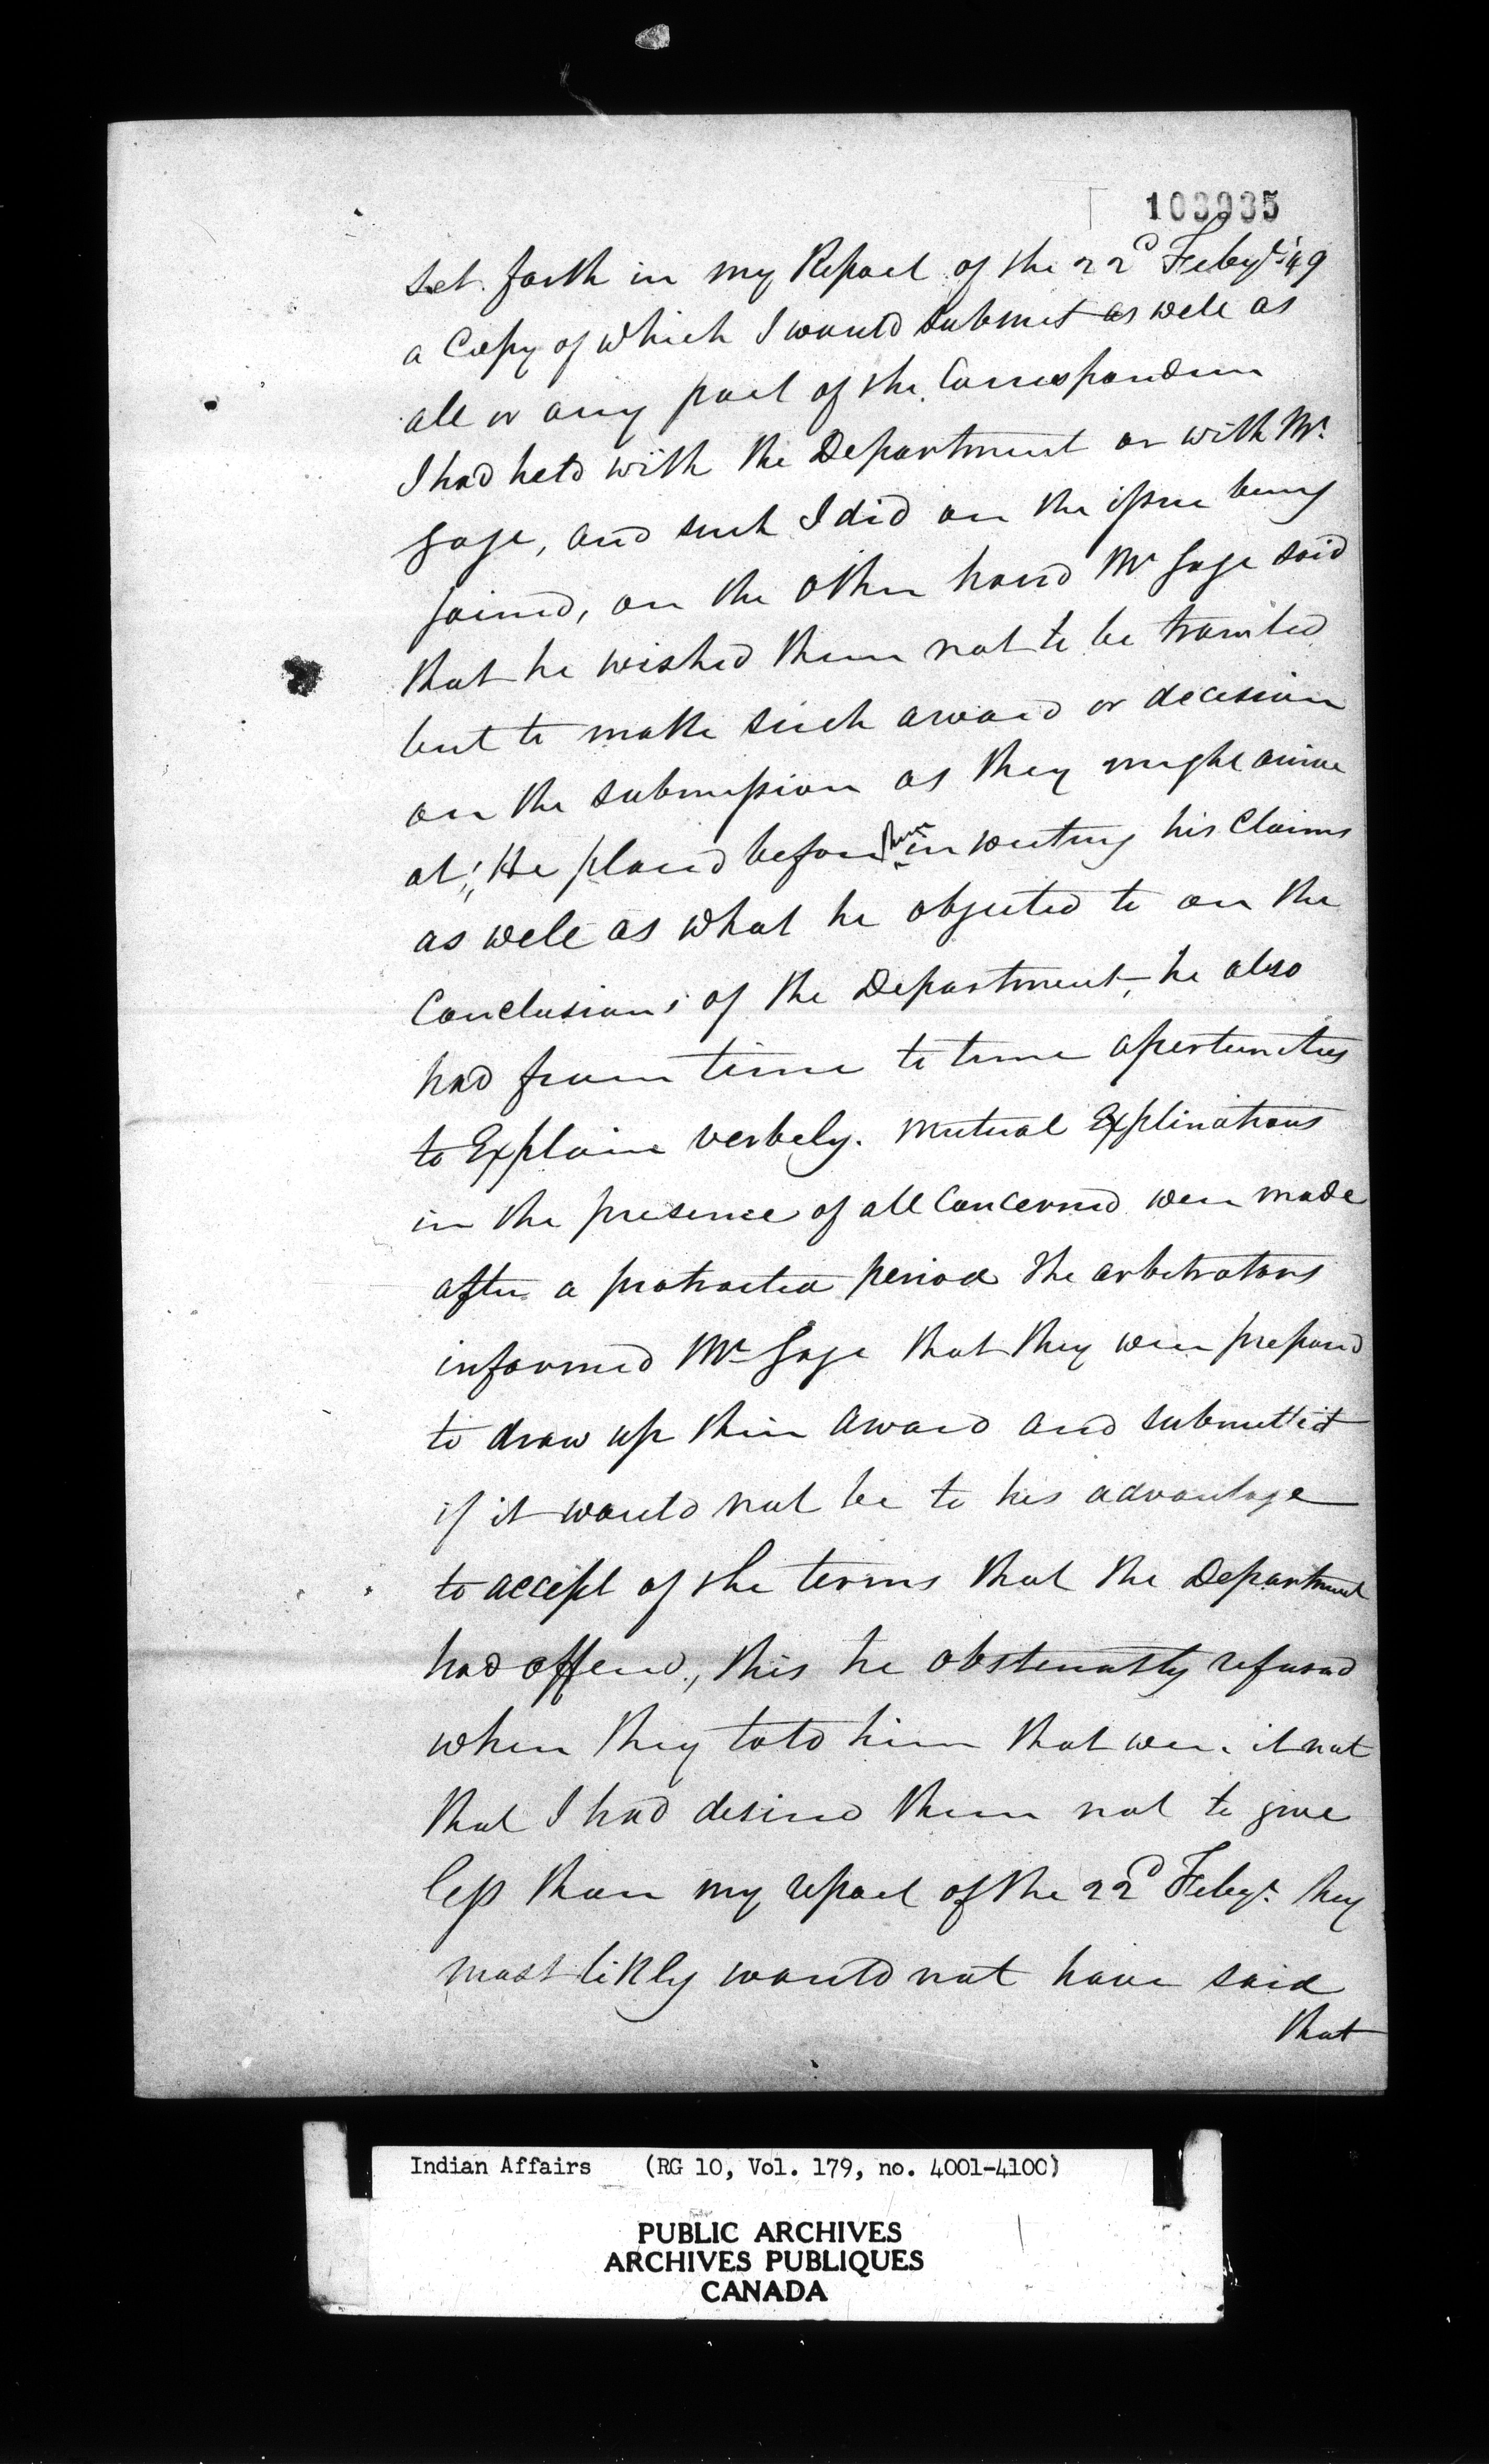 103935
set forth in my Report of the 22d Feby. '49
a Copy of which I would submit as well as
all or any part of the Correspondence
I had held with the Department or with Mr.
Gage, and such I did on the issue being
joined, on the other hand Mr Gage said
that he wished them not to be
but to make such award or decision
on the submission as they might arrive
at; He placed before them in writing his Claims
as well as what he objected to on the
Conclusions of the Department, he also
had from time to time opertunities
to Explain verbely. Mutual Explinations
in the presence of all Concerned were made
after a protracted period the arbitrators
informed Mr Gage that they were prepared
to draw up their award and submitted
if it would not be to his advantage
to accept of the terms that the Department
had offered, this he obstenatly refused
when they told him that were it not
that I had desired them not to give
less than my report of the 22d Feby. they
most likly would not have said
that
Indian Affairs (RG 10, Vol. 179, no. 4001-4100)
PUBLIC ARCHIVES
ARCHIVES PUBLIQUES
CANADA